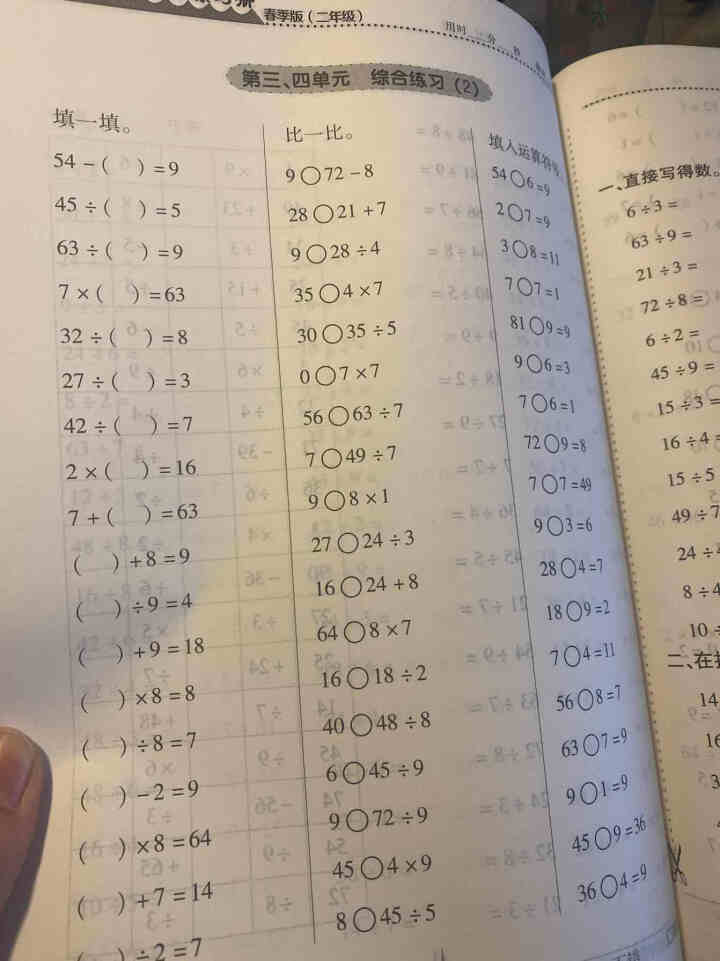 春季版（二年级）
用时 分 秒
第三、四单元 综合练习（2）
填一填。
54－( )＝9
45÷( )＝5
63÷( )＝9
7×( )＝63
32÷( )＝8
27÷( )＝3
42÷( )＝7
2×( )＝16
7＋( )＝63
( )＋8＝9
( )÷9＝4
( )＋9＝18
( )×8＝8
( )÷8＝7
( )－2＝9
( )×8＝64
( )＋7＝14
( )÷2＝7
比一比。
9○72－8
28○21＋7
9○28÷4
35○4×7
30○35÷5
0○7×7
56○63÷7
7○49÷7
9○8×1
27○24÷3
16○24＋8
64○8×7
16○18÷2
40○48÷8
6○45÷9
9○72÷9
45○4×9
8○45÷5
填入运算符号
54○6=9
2○7=9
3○8=11
7○7=1
81○9=9
9○6=3
7○6=1
72○9=8
7○7=49
9○3=6
28○4=7
18○9=2
7○4=11
56○8=7
63○7=9
9○1=9
45○9=36
36○4=9
一、直接写得数。
6÷3＝
63÷9＝
21÷3＝
72÷8＝
6÷2＝
45÷9＝
15÷3＝
16÷4＝
15÷5
49÷7
24÷
8÷4
10÷
二、在
14
16
3